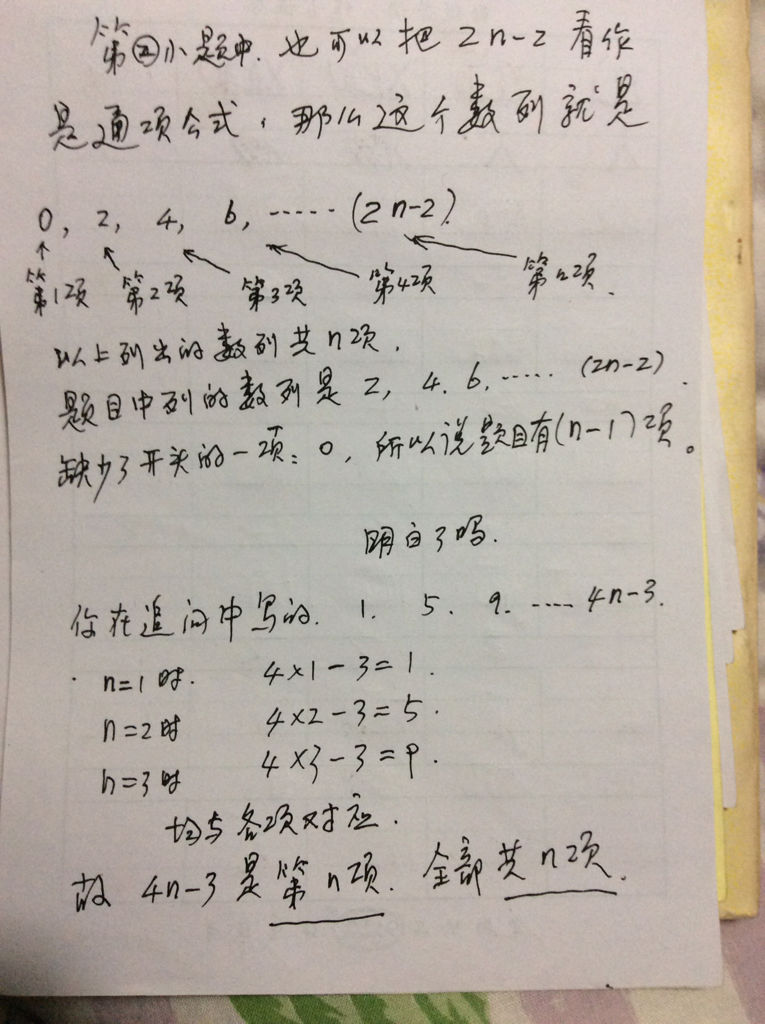 第②小题中.也可以把 2n-2 看作
是通项公式,那么这个数列就是
0, 2, 4, 6, ······ (2n-2).
第1项 第2项 第3项 第4项 第n项.
以上列出的数列共n项.
题目中列的数列是 2, 4. 6. ······ (2n-2).
缺少了开头的一项: 0, 所以说题目有(n-1)项。
明白了吗.
你在追问中写的. 1. 5. 9. ···· 4n-3.
n=1时. 4×1-3=1.
n=2时 4×2-3=5.
n=3时 4×3-3=9.
均与各项对应.
故 4n-3 是第n项. 全部共n项.